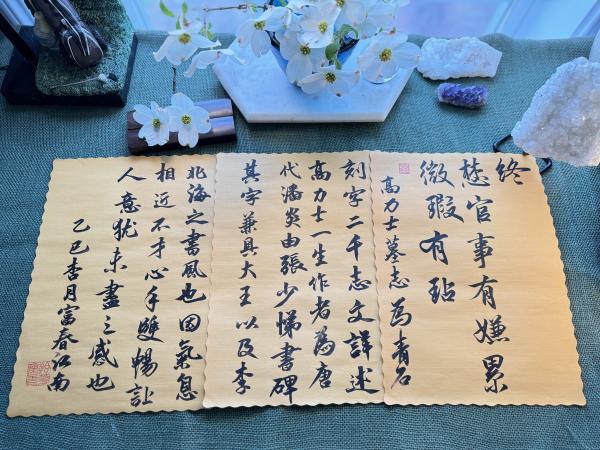 終
愆官事有嫌累
微瑕有玷
高力士墓志為青石
刻字二千志文詳述
高力士一生作者為唐
代潘炎由張少悌書碑
其字兼具大王以及李
北海之書風也因氣息
相近不才心手雙暢让
人意犹未盡之感也
乙巳杏月富春江南